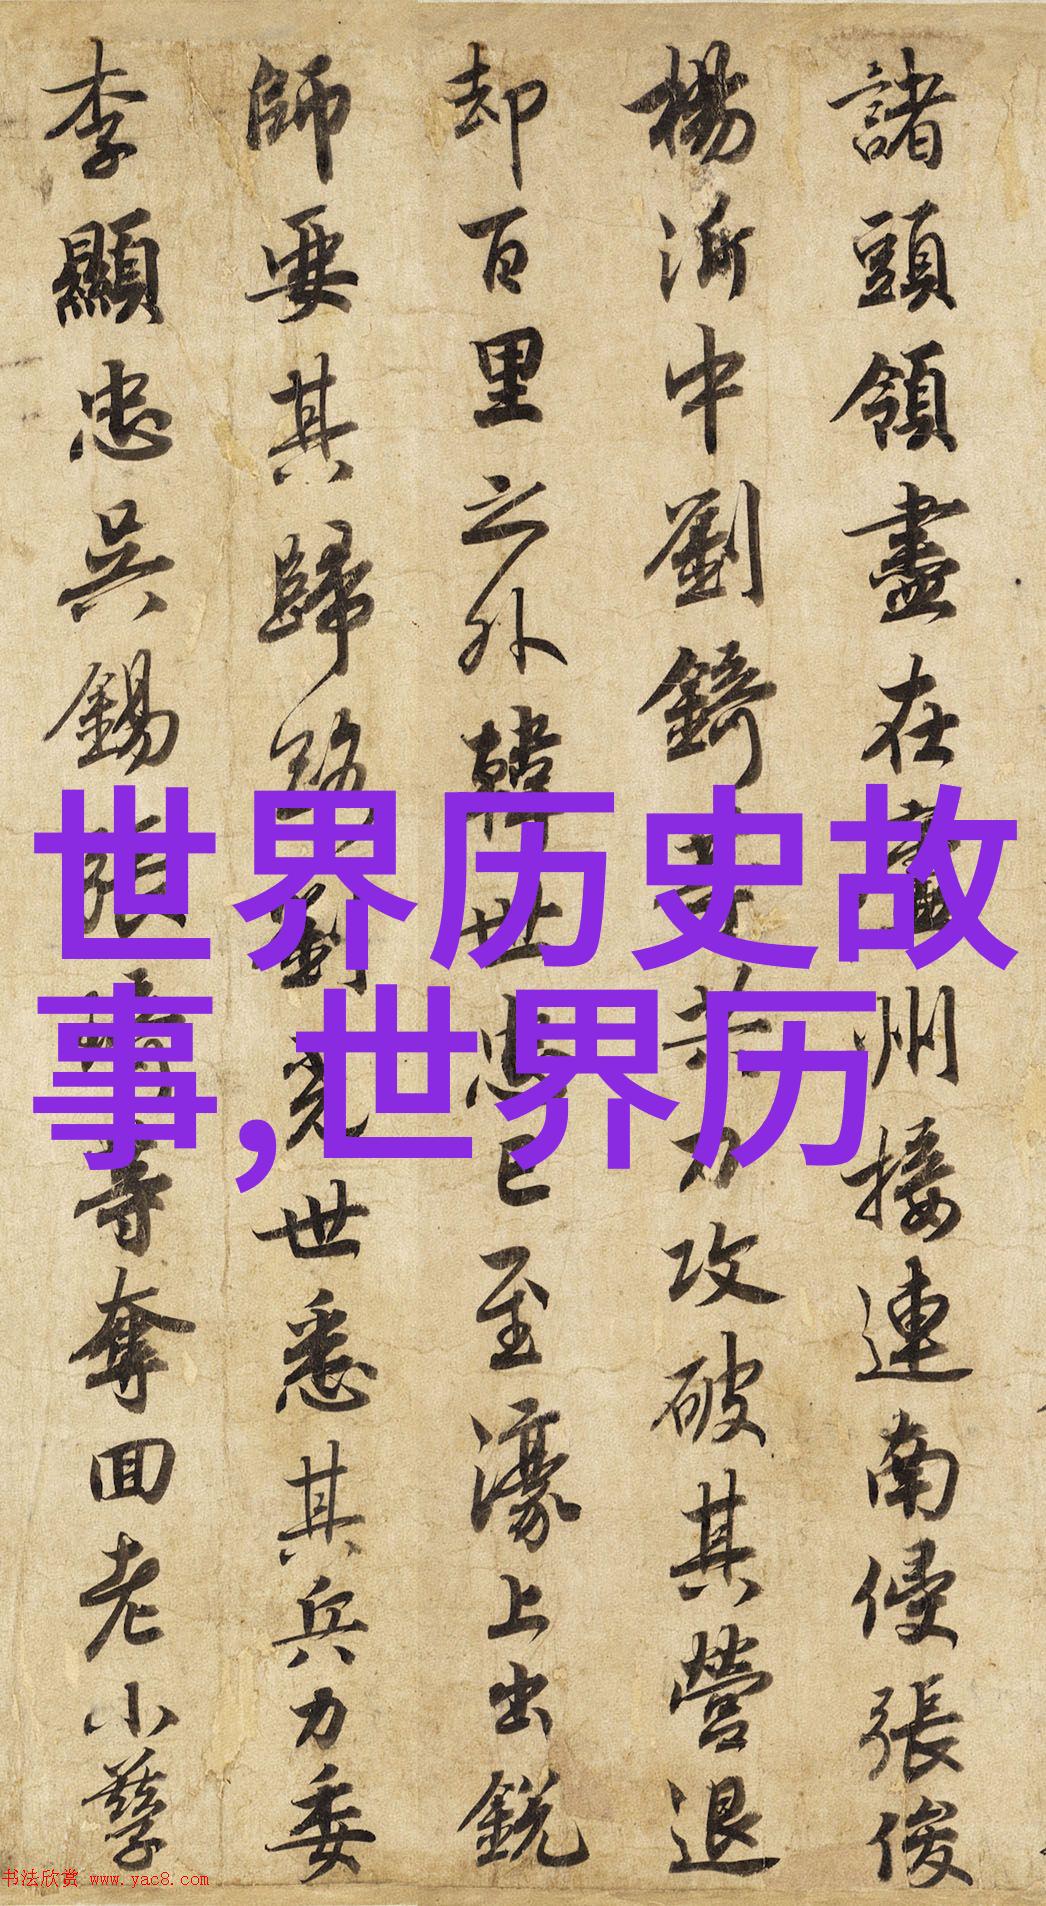 諸頭領盡在廬州接連南侵張俊
楊沂中劉錡等共力攻破其營退
却百里之外韓世忠已至濠上出銳
師要其歸路劉光世悉其兵力委
李顯忠吳錫張琦等奪回老小孳
世界历史故
事,世界历
书法欣赏 www.yac8.com